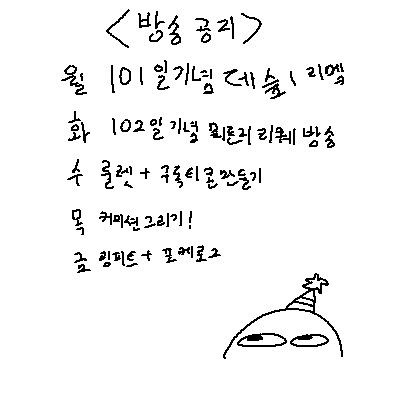 <방송 공지>
월 101일기념 데슬 리멬
화 102일기념 피드러 리퀘 방송
수 룰렛 + 구독티콘만들기
목 커미션그리기!
금 링피트 + 포케로그